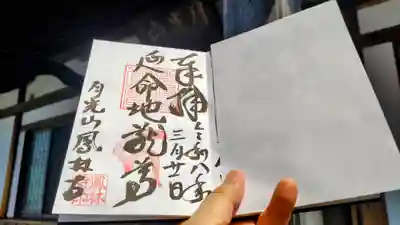 奉拝
令和八年
三月廿日
延命地蔵尊
月光山鳳林寺